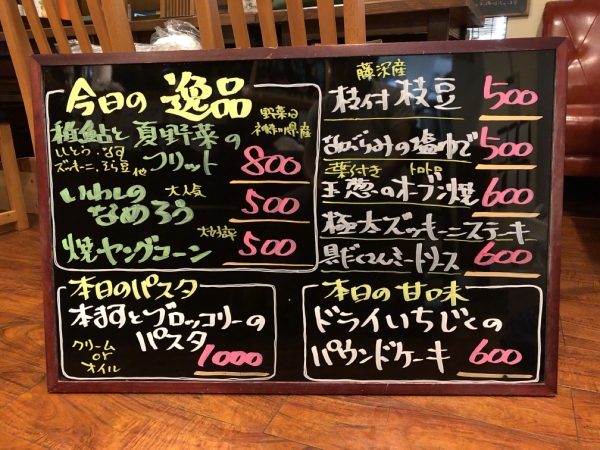 今日の 逸品
野菜は
神奈川県産
稚鮎と 夏野菜の
ししとう・なす
ズッキーニ、そら豆 他
フリット 800
いわしの 大人気
なめろう 500
焼ヤングコーン 大好評 500
藤沢産
枝付 枝豆 500
ながらみの塩ゆで 500
葉付き トロトロ
玉葱のオーブン焼 600
極太ズッキーニステーキ
具だくさんミートソース 600
本日のパスタ
本ますとブロッコリーの
パスタ 1000
クリーム
or
オイル
本日の甘口味
ドライいちじくの
パウンドケーキ 600